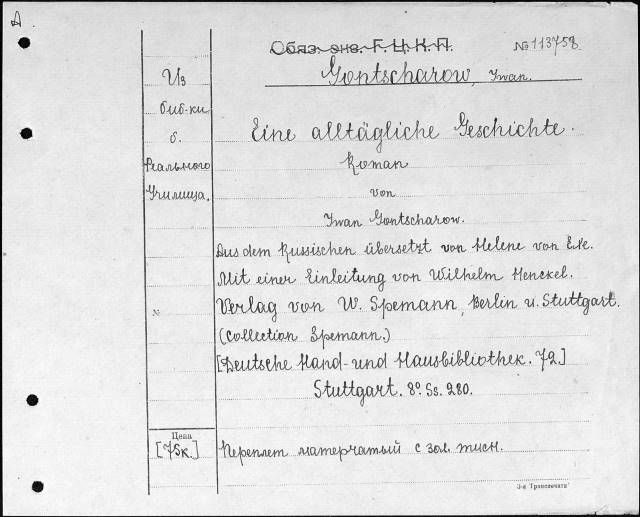 А.
Обяз. экз. Г. Ц. К. П.
№ 113758
Gontscharow, Iwan.
Из
биб-ки
б.
Реального
Училища.
Eine alltägliche Geschichte.
Roman
von
Iwan Gontscharow.
Aus dem Russischen übersetzt von Helene von Exe.
Mit einer Einleitung von Wilhelm Henckel.
Verlag von W. Spemann, Berlin u. Stuttgart.
(Collection Spemann.)
[Deutsche Hand- und Hausbibliothek. 72.]
Stuttgart. 8º. Ss. 280.
№
Цена
[75к.]
Переплет матерчатый с зол. тисн.
3-я Транспечати